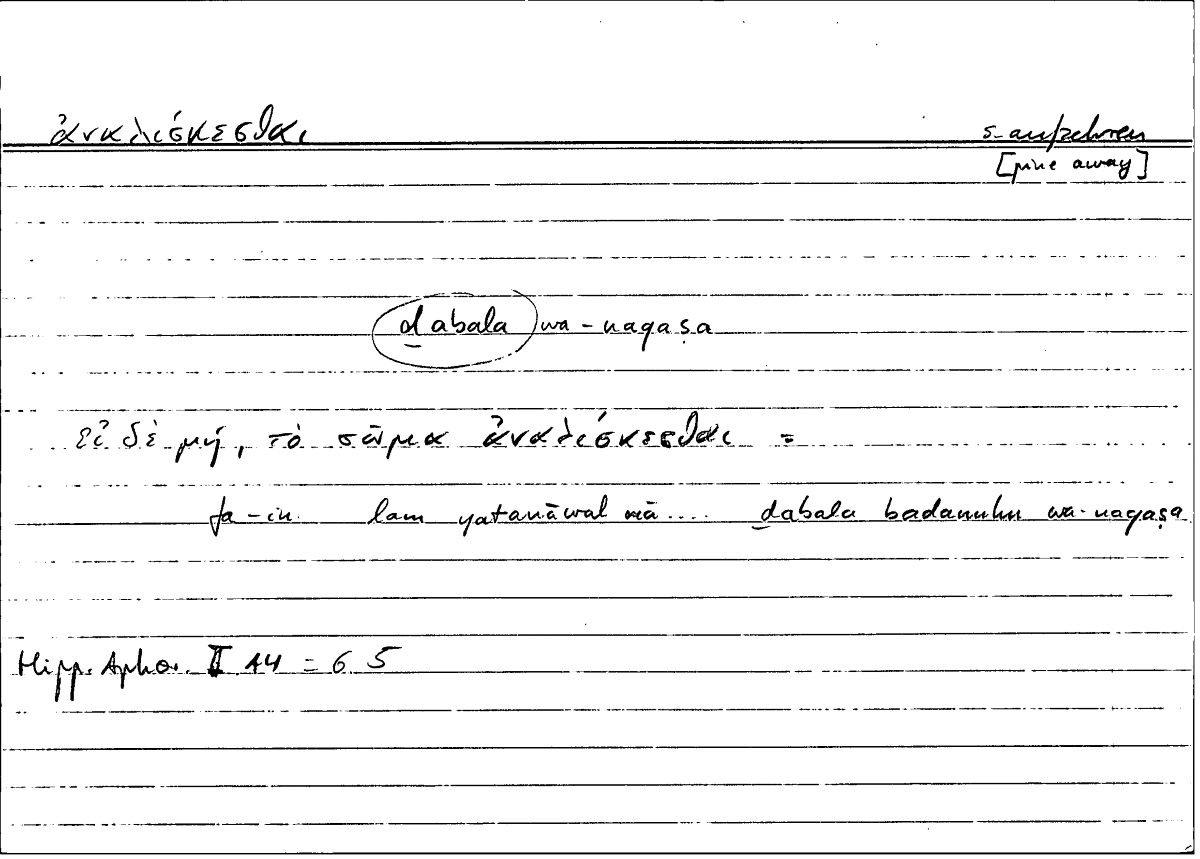 ἀναλίσκεσθαι s. aufzehren
[pine away]
ḏabala wa-naqaṣa
εἰ δὲ μή, τὸ σῶμα ἀναλίσκεσθαι =
fa-in lam yatanāwal mā.... ḏabala badanuhu wa-naqaṣa
Hipp. Aphor. II 14 = 6 5